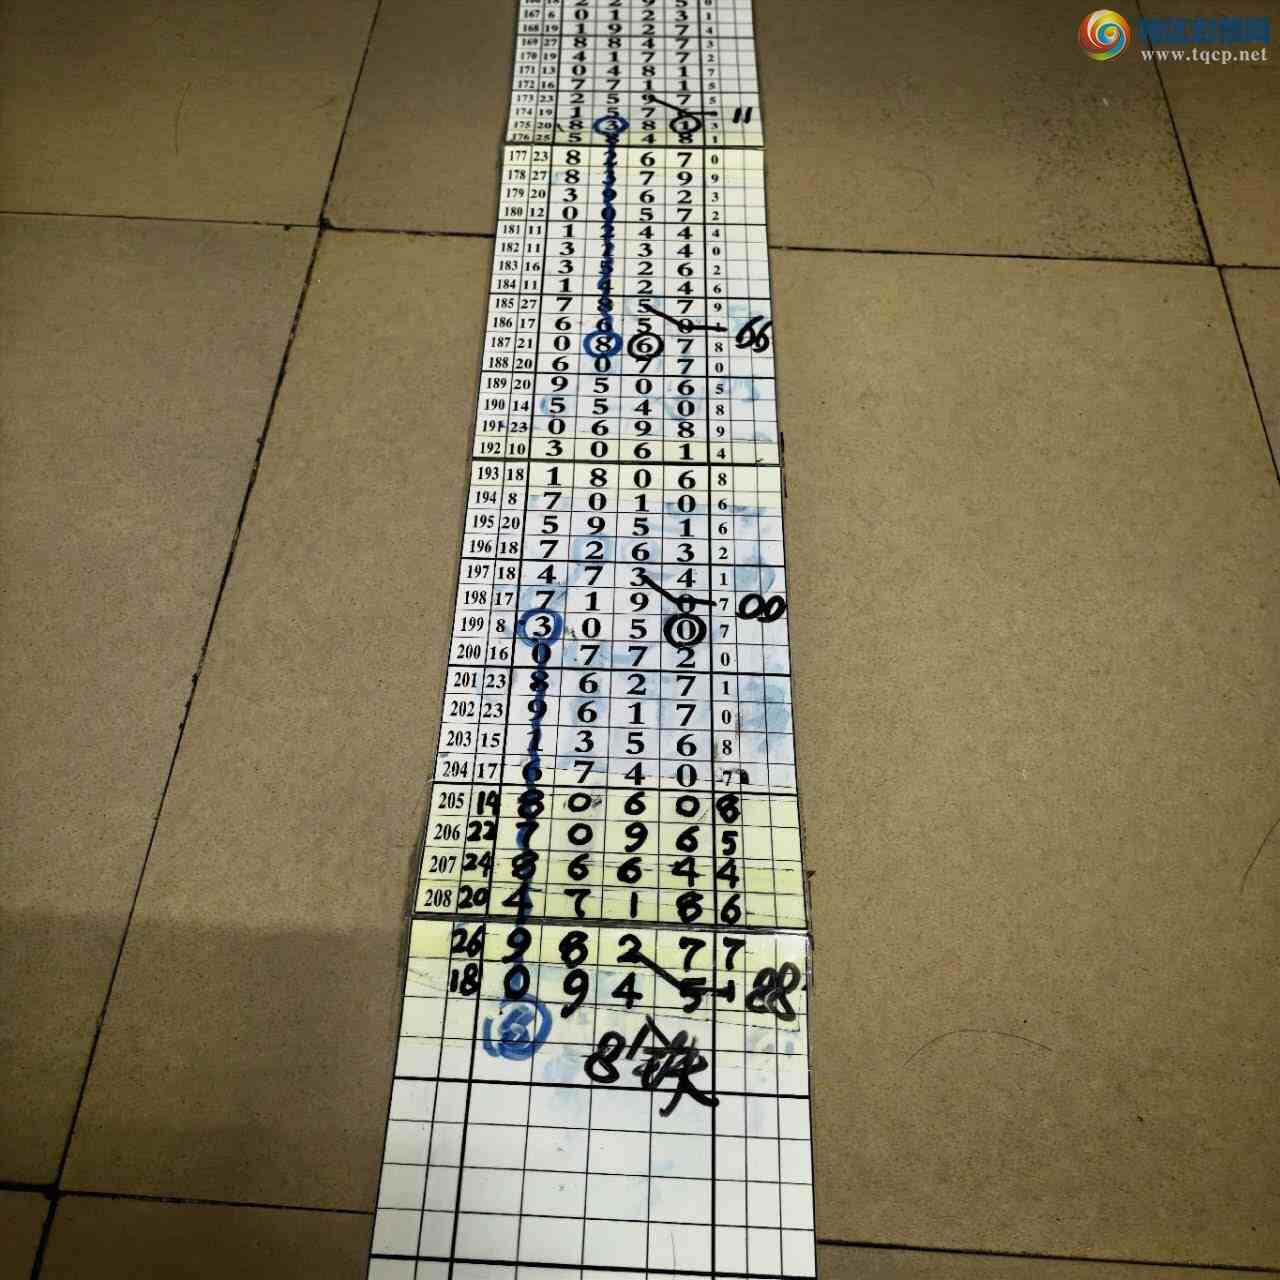 www.tqcp.net
167 6 0 1 2 3 1
168 19 1 9 2 7 4
169 27 8 8 4 7 3
170 19 4 1 7 7 2
171 13 0 4 8 1 7
172 16 7 7 1 1 5
173 23 2 5 9 7 5
174 19 1 5 7
11
175 20 8 3 8 1 3
176 25 5 8 4 8 1
177 23 8 2 6 7 0
178 27 8 3 7 9 9
179 20 3 9 6 2 3
180 12 0 0 5 7 2
181 11 1 2 4 4 4
182 11 3 1 3 4 0
183 16 3 5 2 6 2
184 11 1 4 2 4 6
185 27 7 8 5 7 9
186 17 6 6 5 0 1
66
187 21 0 8 6 7 8
188 20 6 0 7 7 0
189 20 9 5 0 6 5
190 14 5 5 4 0 8
191 23 0 6 9 8 9
192 10 3 0 6 1 4
193 18 1 8 0 6 8
194 8 7 0 1 0 6
195 20 5 9 5 1 6
196 18 7 2 6 3 2
197 18 4 7 3 4 1
198 17 7 1 9 0 7
00
199 8 3 0 5 0 7
200 16 0 7 7 2 0
201 23 8 6 2 7 1
202 23 9 6 1 7 0
203 15 1 3 5 6 8
204 17 6 7 4 0 7
205 14 8 0 6 0 8
206 22 7 0 9 6 5
207 24 8 6 6 4 4
208 20 4 7 1 8 6
26 9 8 2 7 7
18 0 9 4 5 1
88
8